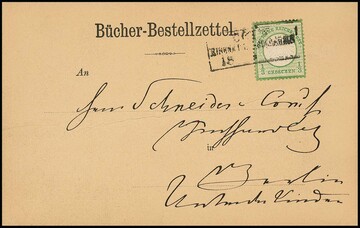 Bücher-Bestellzettel.
18
An
Herrn Schneider & Comp
Buchhandlg
in
Berlin
Unter den Linden